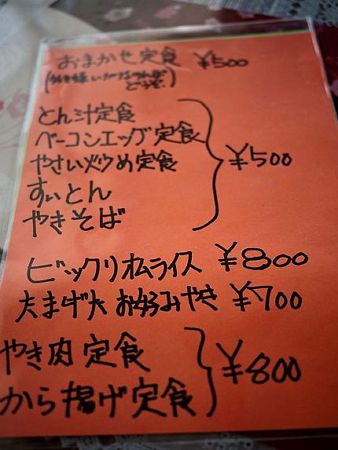 おまかせ定食 ¥500
とん汁定食
ベーコンエッグ定食
やさい炒め定食
すいとん
やきそば
¥500
ビックリオムライス ¥800
たまげ大お好みやき ¥700
やき肉定食
から揚げ定食
¥800